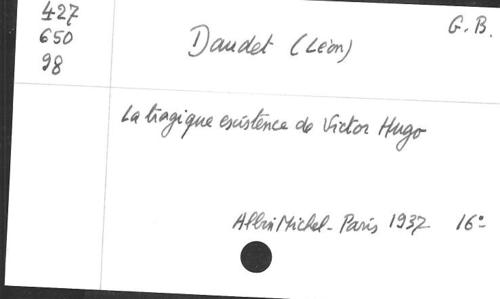 427
650
98
G.B.
Daudet (Léon)
La tragique existence de Victor Hugo
Albin Michel - Paris 1937 16°